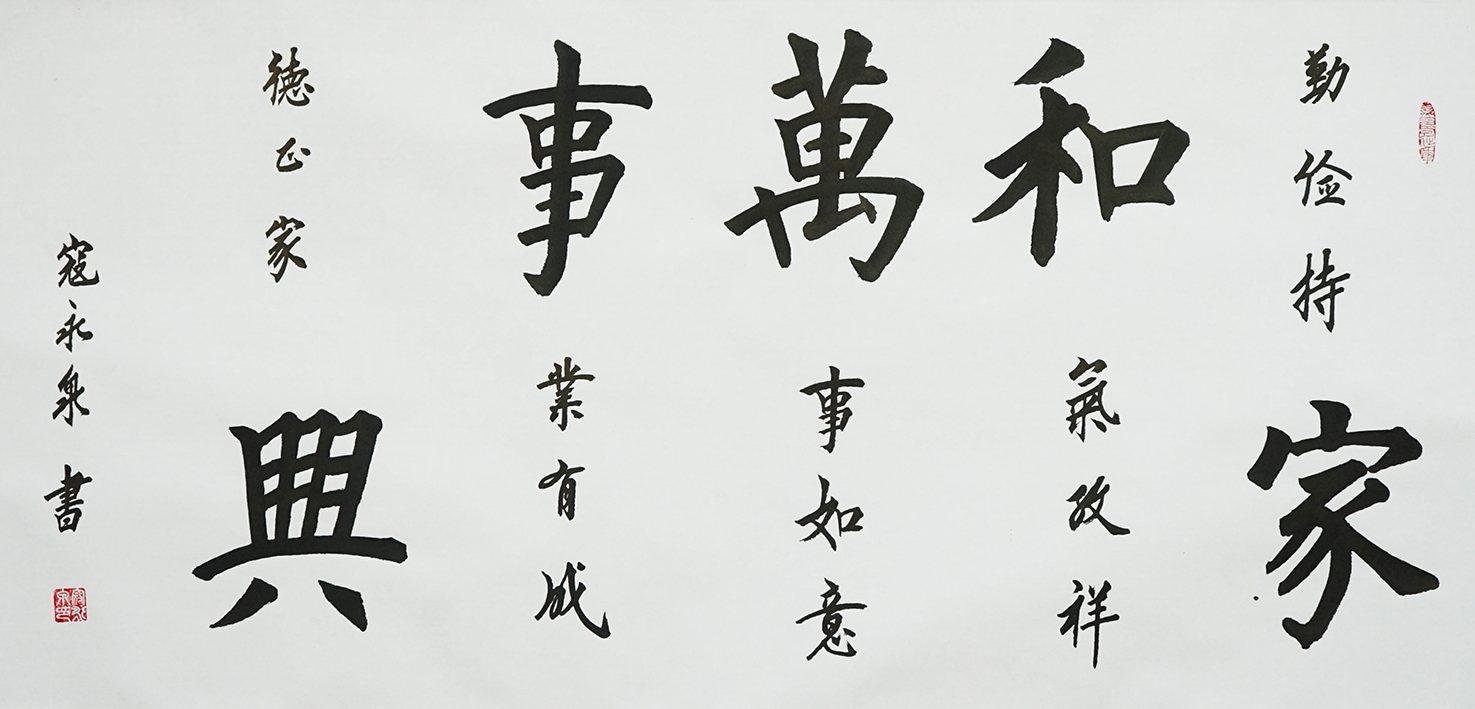 勤俭持家
和氣致祥
萬事如意
事業有成
德正家興
寇永泉書
寇永泉印